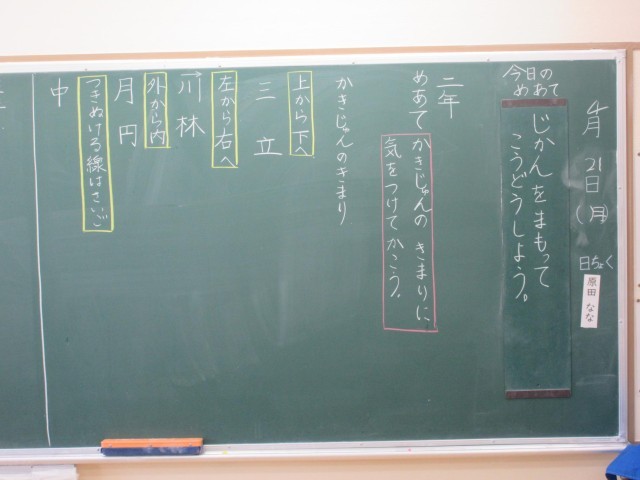 4月21日(月)
日ちょく
原田 なな
今日の
めあて
じかんをまもって
こうどうしよう。
二年
めあて
かきじゅんの きまりに
気をつけてかこう。
かきじゅんのきまり
上から下へ
三 立
左から右へ
川 林
外から内
月 円
つきぬける線はさいご
中